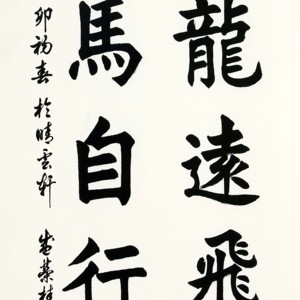 龍遠飛
馬自行
卯初春於晴雲軒